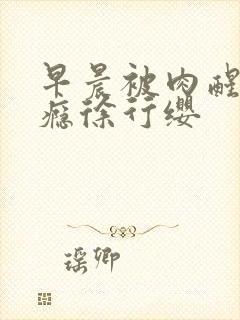 早晨被肉醒
瘾徐行缨
瑶卿